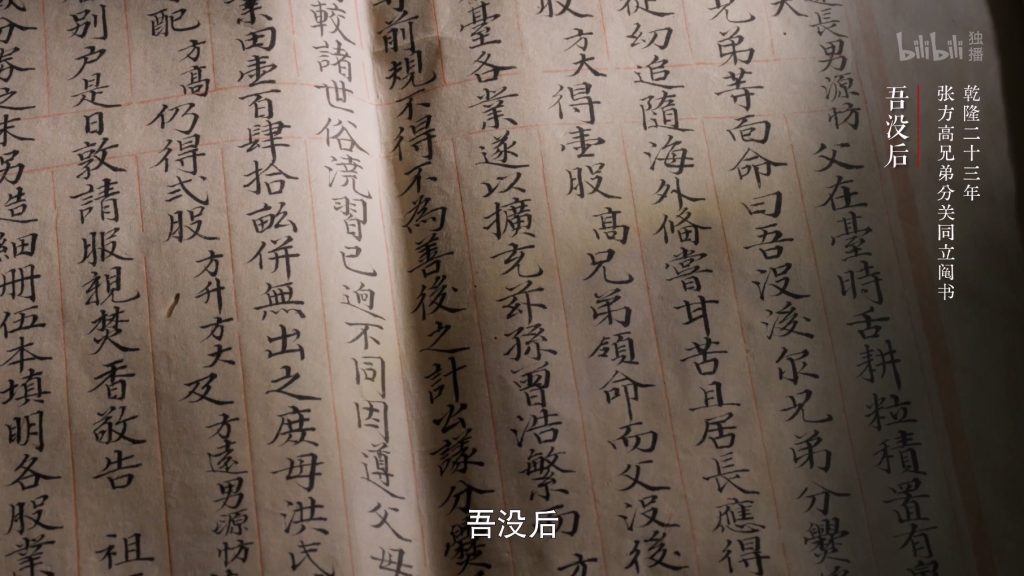 bilibili 独播
乾隆二十三年
张方高兄弟分关同立阄书
吾没后
長男源坊父在臺時舌耕粒積置有泉
兄弟等面命曰吾沒後尔兄弟分爨
從幼追隨海外偹嘗甘苦且居長應得
方大得壹股髙兄弟領命而父没後
臺各業遂以擴充茲孫曾浩繁而方
前規不得不為善後之計公議分爨
較諸世俗澆習已逈不同因遵父母
業田壹百肆拾畝併無出之庻母洪氏
配方髙仍得弍股方升方大及方遠男源坊
別户是日敦請服親焚香敬告 祖
分券之末另造細册伍本填明各股業
吾没后